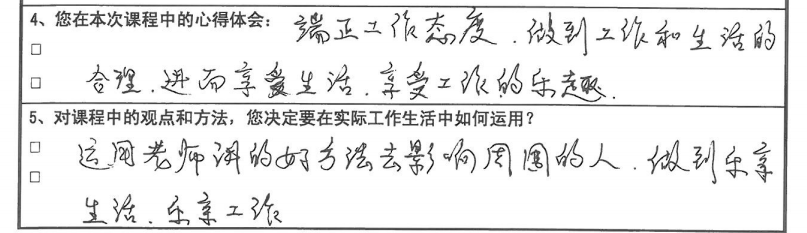 4、您在本次课程中的心得体会： 端正工作态度.做到工作和生活的
□
□ 合理.进而享受生活.享受工作的乐趣.
5、对课程中的观点和方法，您决定要在实际工作生活中如何运用？
□ 运用老师讲的好方法去影响周围的人.做到乐享
□
生活.乐享工作